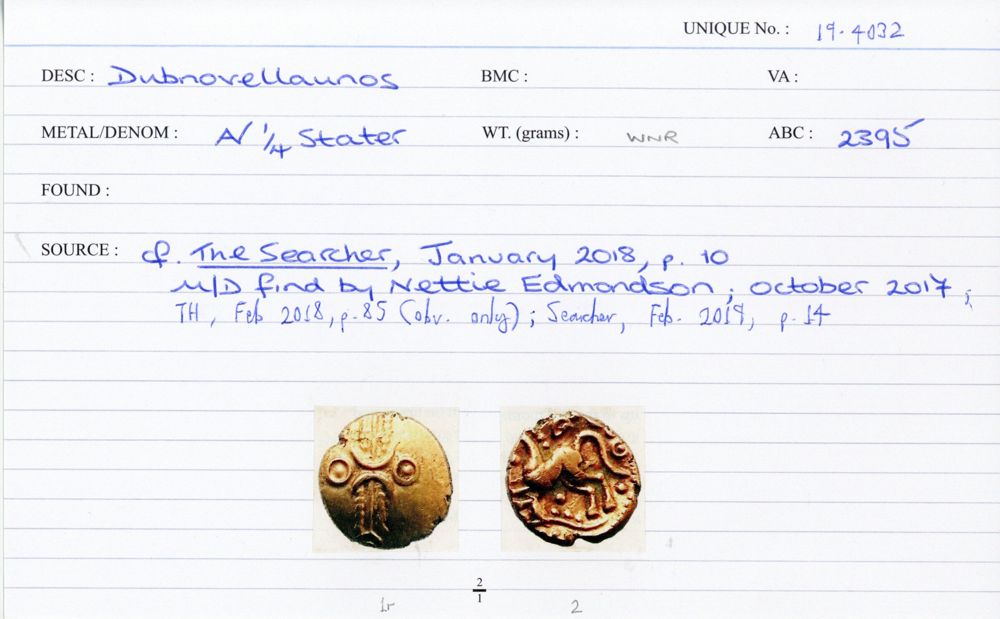 UNIQUE No. : 19.4032
DESC : Dubnovellaunos BMC : VA :
METAL/DENOM : A/ 1/4 Stater WT. (grams) : WNR ABC : 2395
FOUND :
SOURCE : cf. The Searcher, January 2018, p. 10
M/D find by Nettie Edmondson; October 2017;
TH, Feb 2018, p. 85 (obv. only); Searcher, Feb. 2019, p. 14
2
1
1r 2